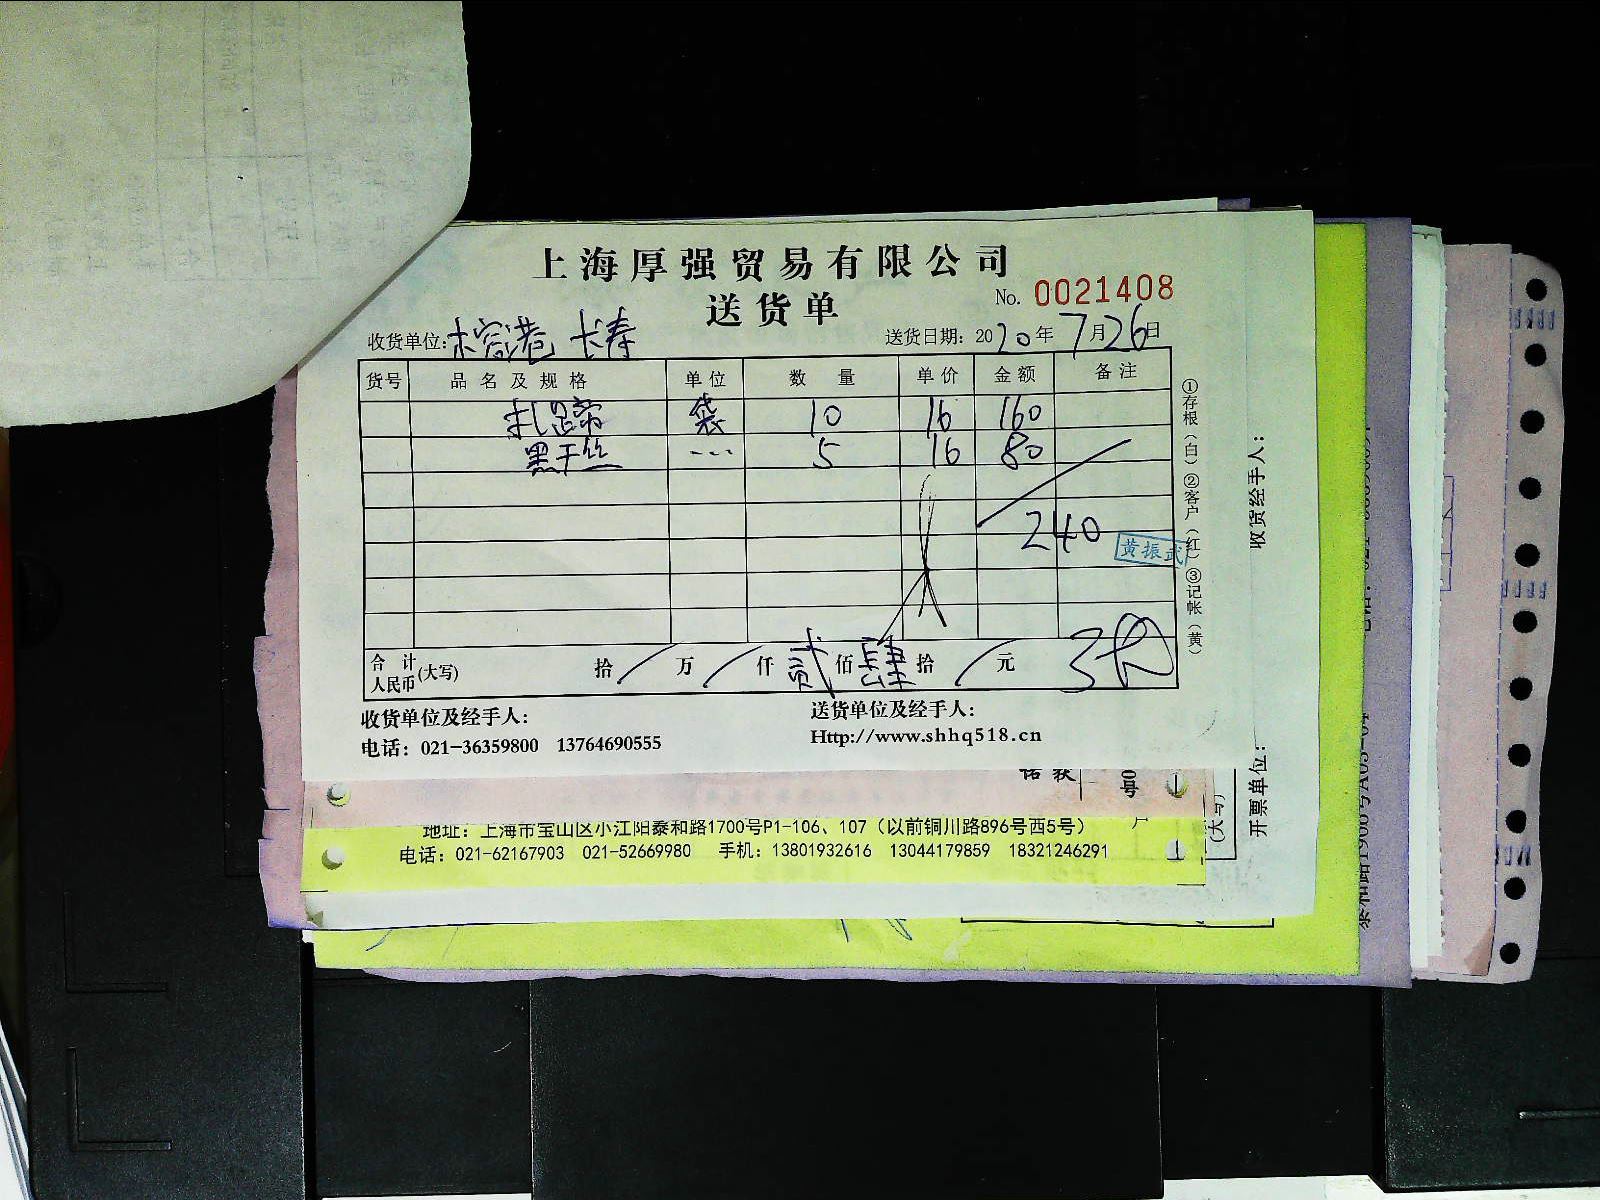 上海厚强贸易有限公司
送货单
No. 0021408
收货单位: 木窑港 长寿
送货日期: 2020年7月26日
货号 品名及规格 单位 数量 单价 金额 备注
扎蹄 袋 10 16 160
黑干丝 --- 5 16 80
240
黄振武
合计人民币(大写) 拾 / 万 / 仟 贰 佰 肆 拾 / 元
收货单位及经手人:
送货单位及经手人:
电话: 021-36359800 13764690555
Http://www.shhq518.cn
①存根(白)②客户(红)③记帐(黄)
收货经手人:
开票单位:
(大写)
地址: 上海市宝山区小江阳泰和路1700号P1-106、107 (以前铜川路896号西5号)
电话: 021-62167903 021-52669980 手机: 13801932616 13044179859 18321246291